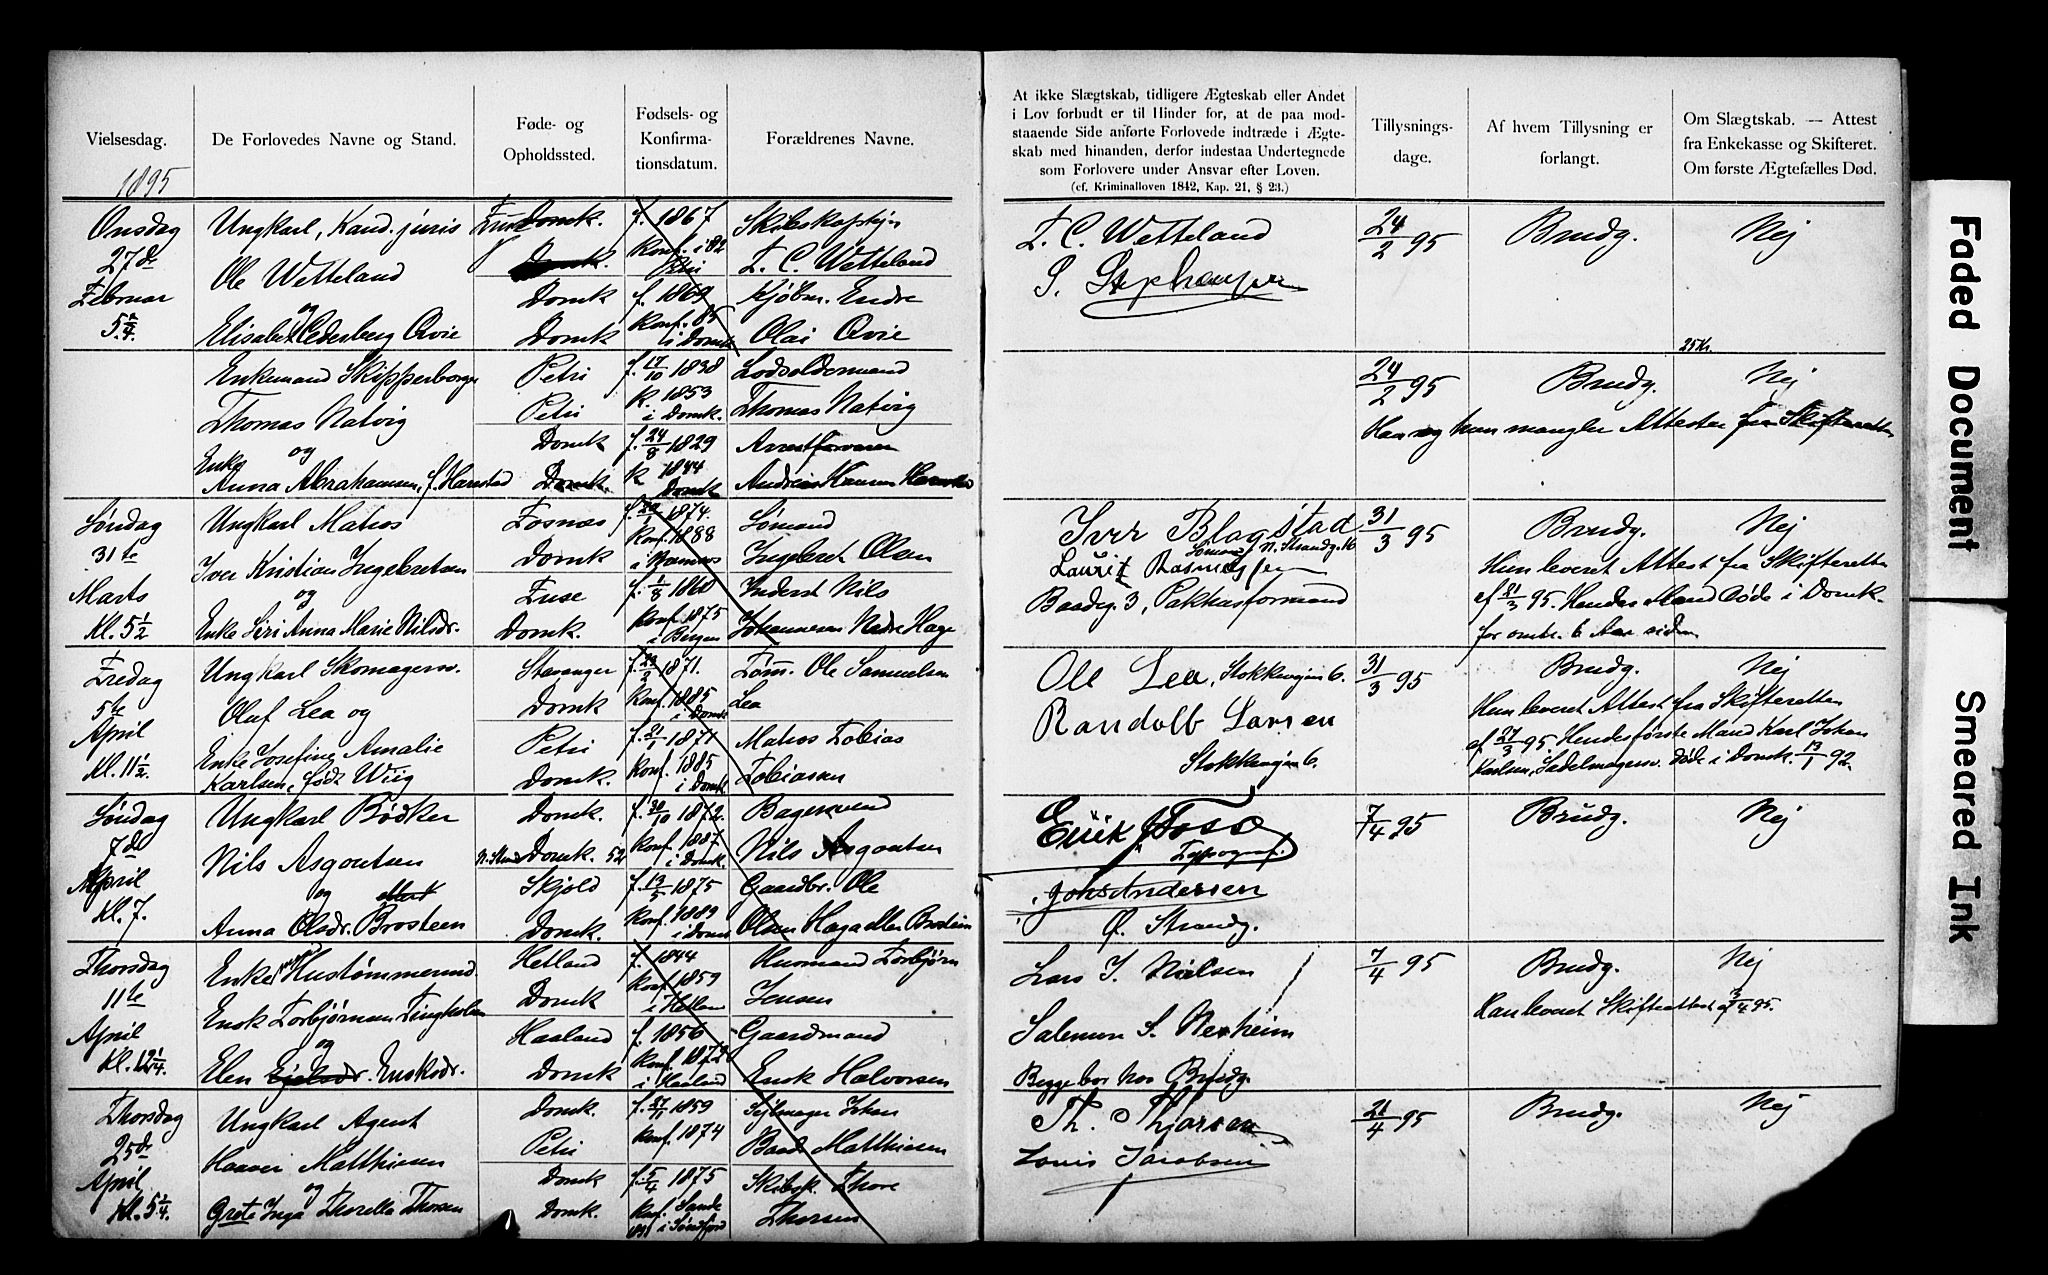 Vielsesdag.
De Forlovedes Navne og Stand.
Føde- og
Opholdssted.
Fødsels- og
Konfirma-
tionsdatum.
Forældrenes Navne.
At ikke Slægtskab, tidligere Ægteskab eller Andet
i Lov forbudt er til Hinder for, at de paa mod-
staaende Side anførte Forlovede indtræde i Ægte-
skab med hinanden, derfor indestaa Undertegnede
som Forlovere under Ansvar efter Loven.
(cf. Kriminalloven 1842, Kap. 21, § 23.)
Tillysnings-
dage.
Af hvem Tillysning er
forlangt.
Om Slægtskab. — Attest
fra Enkekasse og Skifteret.
Om første Ægtefælles Død.
1895
Onsdag
27de
Februar
Ungkarl, Kand. juris
Ole Wetteland
og
Elisabet Cederberg Qvie
Domk.
Domk.
Domk
Domk
f. 1867
Konf. i 82
Petri
f. 1869
Konf. 85
i Domk
Skibskaptejn
T. C. Wetteland
Kjøbm. Endre
Olai Qvie
T. C. Wetteland
S. Stephansen
24/2 95
Brudg.
Nej
Enkemand Skipperborger
Thomas Natvig
og
Enke
Anna Abrahamsen, f. Harestad
Petri
Petri
Domk
Domk.
f. 17/10 1838
k. 1853
i Domk.
f. 24/8 1829
k 1844
Domk
Lodsoldermand
Thomas Natvig
Arrestforvarer
Andreas Hansen
24/2 95
Brudg.
25 Kr.
Nej
Han og hun mangler Attester fra Skifteretten
Søndag
31te
Marts
Kl. 5 1/2
Ungkarl Matros
Iver Kristian Ingebretsen
og
Enke Siri Anna Marie Nilsdr.
Fosnæs
Domk
Fuse
Domk.
1874.
Konf. 1888
f. 1/8 1860
Konf. 1875
i Bergen
Sømand
Ingebret Olsen
Inderst Nils
Johannesen Nedre Hage
Iver Blagstad
Lauritz Rasmussen
Baadeg. 3, Pakhusformand
31/3 95
Brudg.
Nej
Hun leveret Attest fra Skifteretten
af 21/3 95. Hendes Mand døde i Domk.
for omtr. 6 Aar siden
Fredag
5te
April
Kl. 11 1/2.
Ungkarl Skomagersv.
Oluf Lea og
Enke Josefine Amalie
Karlsen, født Wiig
Stavanger
Domk
Petri
Domk.
1871.
Konf. 1885
i Domk
f. 21/1 1871
Konf. 1885
i Domk
Tøm. Ole Samuelsen
Lea
Matros Tobias
Tobiasen
Ole Lea, Stokkevejen 6.
Randolb Larsen
Stokkevejen 6.
31/3 95
Brudg.
Nej
Hun leveret Attest fra Skifteretten
af 27/3 95. Hendes første Mand Karl Johan
Karlsen, Sadelmagersv. døde i Domk. 13/1 92.
Søndag
7de
April
Kl. 7.
Ungkarl Bødker
Nils Asgautsen
og
Anna Olsdr. Brosteen
Domk.
Domk. 52
Skjold
Domk.
f. 30/10 1872.
Konf. 1887
i Domk.
f. 13/5 1875
Konf. 1889
i Domk
Bagersvend
Nils Asgautsen
Gaardbr. Ole
Olsen Haga eller Brosteen
Erik J Fosse
Typograf.
Jon Andersen
Ø. Strandg.
7/4 95
Brudg.
Nej
Thorsdag
11te
April
Kl. 12 1/4.
Enkem. Hustømmermd.
Ensk Torbjørnsen Tingholm
og
Elen Ejelsdr. Enoksdr.
Hetland
Domk
Haaland
Domk
f. 1844
Konf. 1859
i Hetland
f. 1856
Konf. 1872
i Haaland
Husmand Torbjørn
Jensen
Gaardmand
Enok Halvorsen
Lars I. Nielsen
Salemon S. Nerheim
Begge bor hos Brudg.
7/4 95
Brudg.
Nej
Han leveret Skifteattest af 3/4 95.
Thorsdag
25de
April
Kl. 5 1/4.
Ungkarl Agent
Haaver Matthiesen
og
Grete Inga Thorella Thorsen
Domk.
Petri
Domk
Domk.
1859
Konf. 1874
f. 5/4 1875
Konf. Sande
i Søndfjord
Sejlmager Johan
Baad Matthiesen
Skibsk. Thore
Thorsen
Th. Thjorsen
Louis Jacobsen
21/4 95
Brudg.
Nej
Faded Document
Smeared Ink